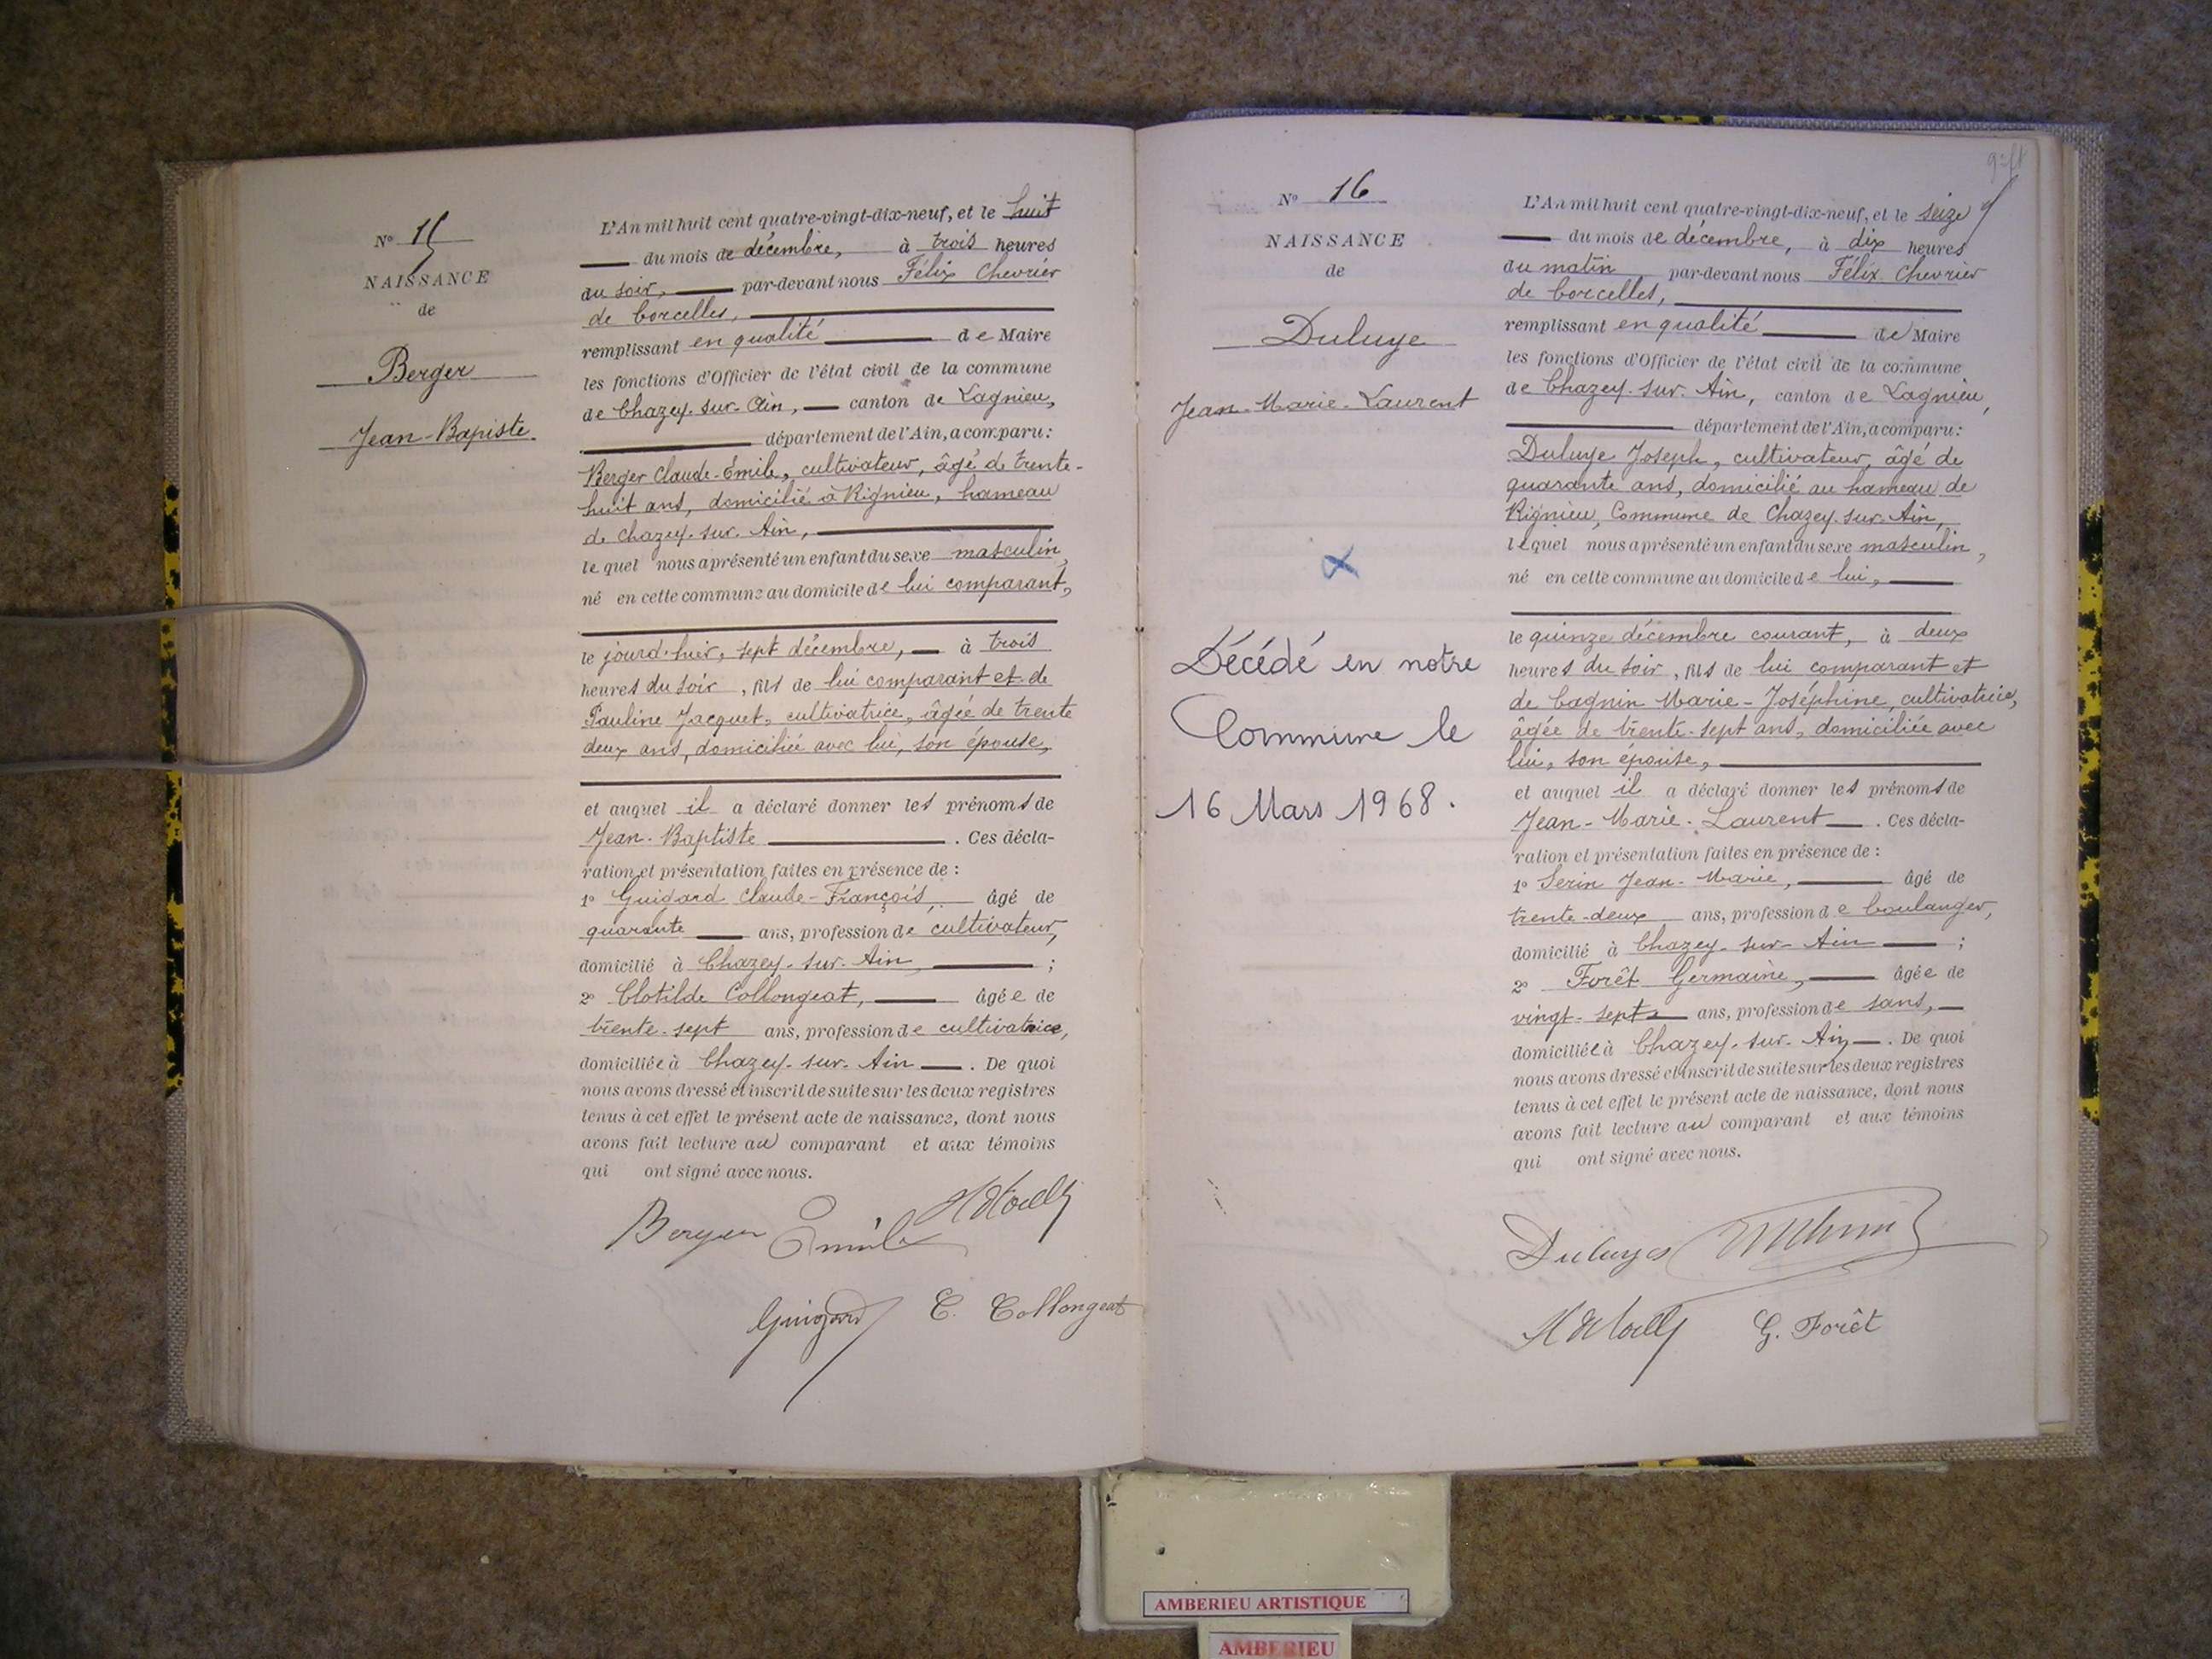 N° 15
NAISSANCE
de
Berger
Jean-Bapiste
L'An mil huit cent quatre-vingt-dix-neuf, et le huit
du mois de décembre, à trois heures
du soir, par-devant nous Félix Chevrier
de Corcelles,
remplissant en qualité de Maire
les fonctions d'Officier de l'état civil de la commune
de Chazey-sur-Ain, canton de Lagnieu,
département de l'Ain, a comparu:
Berger Claude-Émile, cultivateur, âgé de trente-
huit ans, domicilié à Rignieu, hameau
de Chazey-sur-Ain,
le quel nous a présenté un enfant du sexe masculin,
né en cette commune au domicile de lui comparant,
le jourd'hier, sept décembre, à trois
heures du soir, fils de lui comparant et de
Pauline Jacquet, cultivatrice, âgée de trente
deux ans, domiciliée avec lui, son épouse,
et auquel il a déclaré donner les prénoms de
Jean-Baptiste. Ces décla-
ration et présentation faites en présence de :
1° Guigard Claude-François, âgé de
quarante ans, profession de cultivateur,
domicilié à Chazey-sur-Ain, ;
2° Clotilde Collongeat, âgée de
trente-sept ans, profession de cultivatrice,
domiciliée à Chazey-sur-Ain. De quoi
nous avons dressé et inscrit de suite sur les deux registres
tenus à cet effet le présent acte de naissance, dont nous
avons fait lecture au comparant et aux témoins
qui ont signé avec nous.
Berger Emile
Guigard C. Collongeat
N° 16
NAISSANCE
de
Duluye
Jean-Marie-Laurent
Décédé en notre
Commune le
16 Mars 1968.
L'An mil huit cent quatre-vingt-dix-neuf, et le seize
du mois de décembre, à dix heures
du matin par-devant nous Félix Chevrier
de Corcelles,
remplissant en qualité de Maire
les fonctions d'Officier de l'état civil de la commune
de Chazey-sur-Ain, canton de Lagnieu,
département de l'Ain, a comparu:
Duluye Joseph, cultivateur, âgé de
quarante ans, domicilié au hameau de
Rignieu, Commune de Chazey-sur-Ain,
lequel nous a présenté un enfant du sexe masculin,
né en cette commune au domicile de lui,
le quinze décembre courant, à deux
heures du soir, fils de lui comparant et
de Cagnin Marie-Joséphine, cultivatrice,
âgée de trente-sept ans, domiciliée avec
lui, son épouse,
et auquel il a déclaré donner les prénoms de
Jean-Marie-Laurent. Ces décla-
ration et présentation faites en présence de :
1° Serin Jean-Marie, âgé de
trente-deux ans, profession de boulanger,
domicilié à Chazey-sur-Ain ;
2° Forêt Germaine, âgée de
vingt-sept ans, profession de sans,
domiciliée à Chazey-sur-Ain. De quoi
nous avons dressé et inscrit de suite sur les deux registres
tenus à cet effet le présent acte de naissance, dont nous
avons fait lecture au comparant et aux témoins
qui ont signé avec nous.
Duluye
G. Forêt
AMBERIEU ARTISTIQUE
AMBERIEU